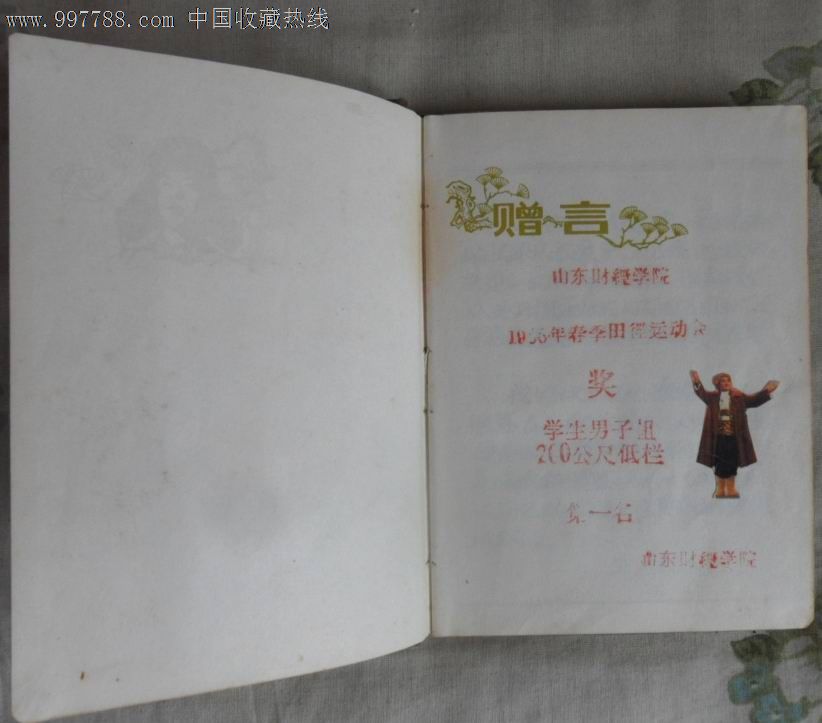 www.997788.com 中国收藏热线
赠言
山东财经学院
年春季田径运动会
奖
学生男子组
200公尺低栏
第一名
山东财经学院